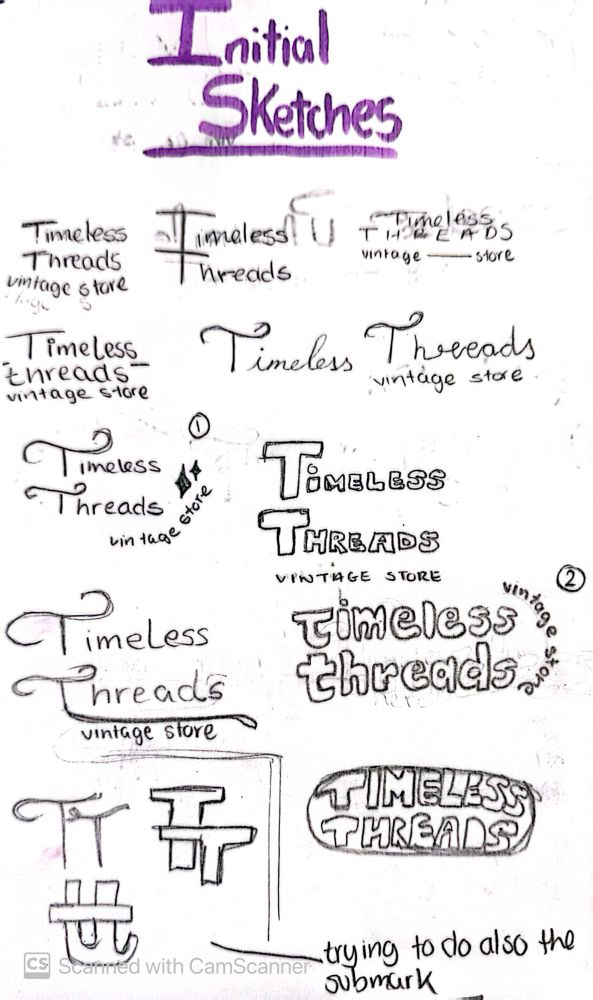 Initial
Sketches
Timeless
Threads
vintage store
Timeless
Threads
Timeless
THREADS
vintage store
Timeless
threads
vintage store
Timeless Threads
vintage store
1
Timeless
Threads
vintage store
TIMELESS
THREADS
VINTAGE STORE
2
timeless
threads
vintage store
Timeless
Threads
vintage store
TT
TT
tt
TIMELESS
THREADS
trying to do also the
submark
CS Scanned with CamScanner